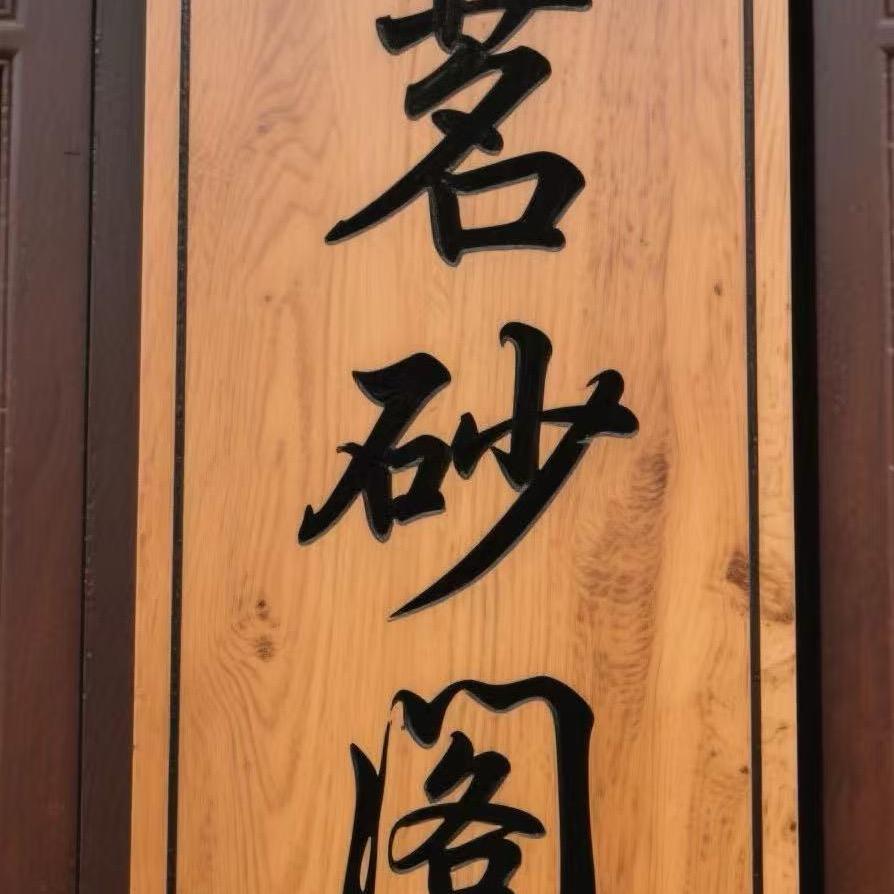 茗砂阁